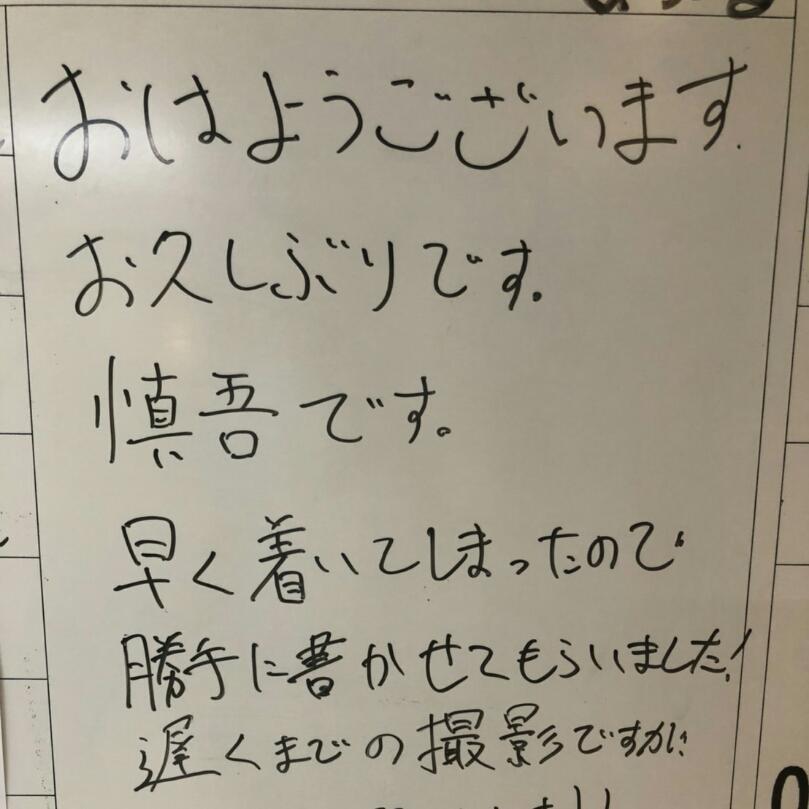 おはようございます.
お久しぶりです。
慎吾です。
早く着いてしまったので
勝手に書かせてもらいました!
遅くまでの撮影ですが